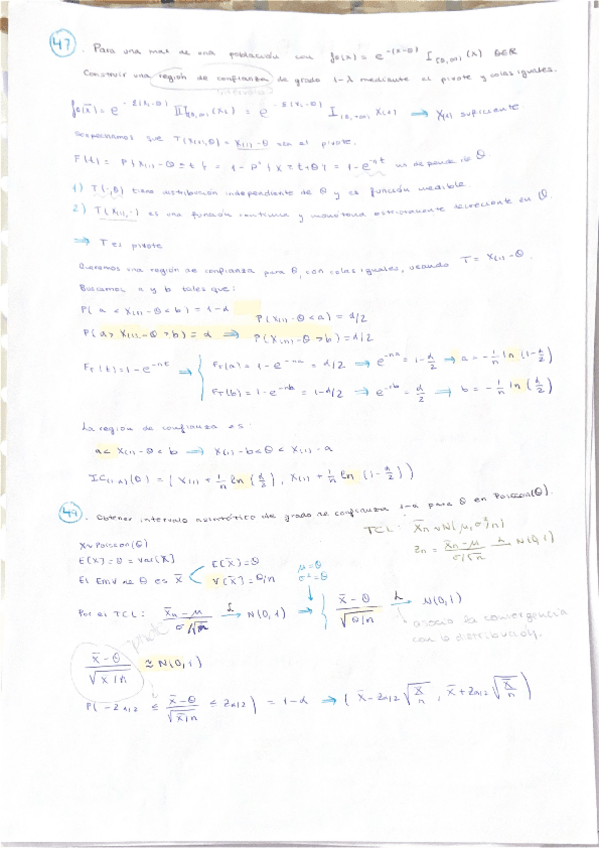 47. Para una mas de una población con fθ(x) = e^-(x-θ) I[θ,∞)(x) θ∈R
Construir una región de confianza de grado 1-α mediante el pivote y colas iguales.
fθ(x̄) = e^-Σ(xi-θ) Π I[θ,∞)(xi) = e^-Σ(xi-θ) I[θ,+∞) X(1) ⇒ X(1) suficiente.
que T(X(1),θ) = X(1)-θ sea el pivote.
F(t) = P{X(1)-θ ≤ t} = 1 - P^n{X > t+θ} = 1 - e^-nt no depende de θ
1) T(·,θ) tiene distribución independiente de θ y es función medible.
2) T(X(1),·) es una función continua y monótona estrictamente decreciente en θ.
⇒ T es pivote
Queremos una región de confianza para θ, con colas iguales, usando T = X(1)-θ.
Buscamos a y b tales que:
P(a < X(1)-θ < b) = 1-α
P(X(1)-θ < a) = α/2
P(a > X(1)-θ > b) = α ⇒ P(X(1)-θ > b) = α/2
FT(t) = 1-e^-nt ⇒ { FT(a) = 1-e^-na = α/2 ⇒ e^-na = 1-α/2 ⇒ a = -1/n ln(1-α/2)
FT(b) = 1-e^-nb = 1-α/2 ⇒ e^-nb = α/2 ⇒ b = -1/n ln(α/2)
La región de confianza es:
a < X(1)-θ < b ⇒ X(1)-b < θ < X(1)-a
IC(1-α)(θ) = (X(1) + 1/n ln(α/2), X(1) + 1/n ln(1-α/2))
49. Obtener intervalo asintótico de grado de confianza 1-α para θ en Poisson(θ).
TCL: X̄n ≈ N(μ, σ²/n)
Zn = (X̄n-μ)/(σ/√n) →L N(0,1)
X~Poisson(θ)
E[X] = θ = Var[X]
E[X̄] = θ
El EMV de θ es X̄
V[X̄] = θ/n
μ=θ
σ²=θ
Por el TCL: (X̄n-μ)/(σ/√n) →L N(0,1) ⇒ { (X̄-θ)/√(θ/n) →L N(0,1)
asocio la convergencia
con la distribución.
(X̄-θ)/√(X̄/n) ≈ N(0,1)
P(-Zα/2 ≤ (X̄-θ)/√(X̄/n) ≤ Zα/2) = 1-α ⇒ (X̄-Zα/2 √(X̄/n), X̄+Zα/2 √(X̄/n))